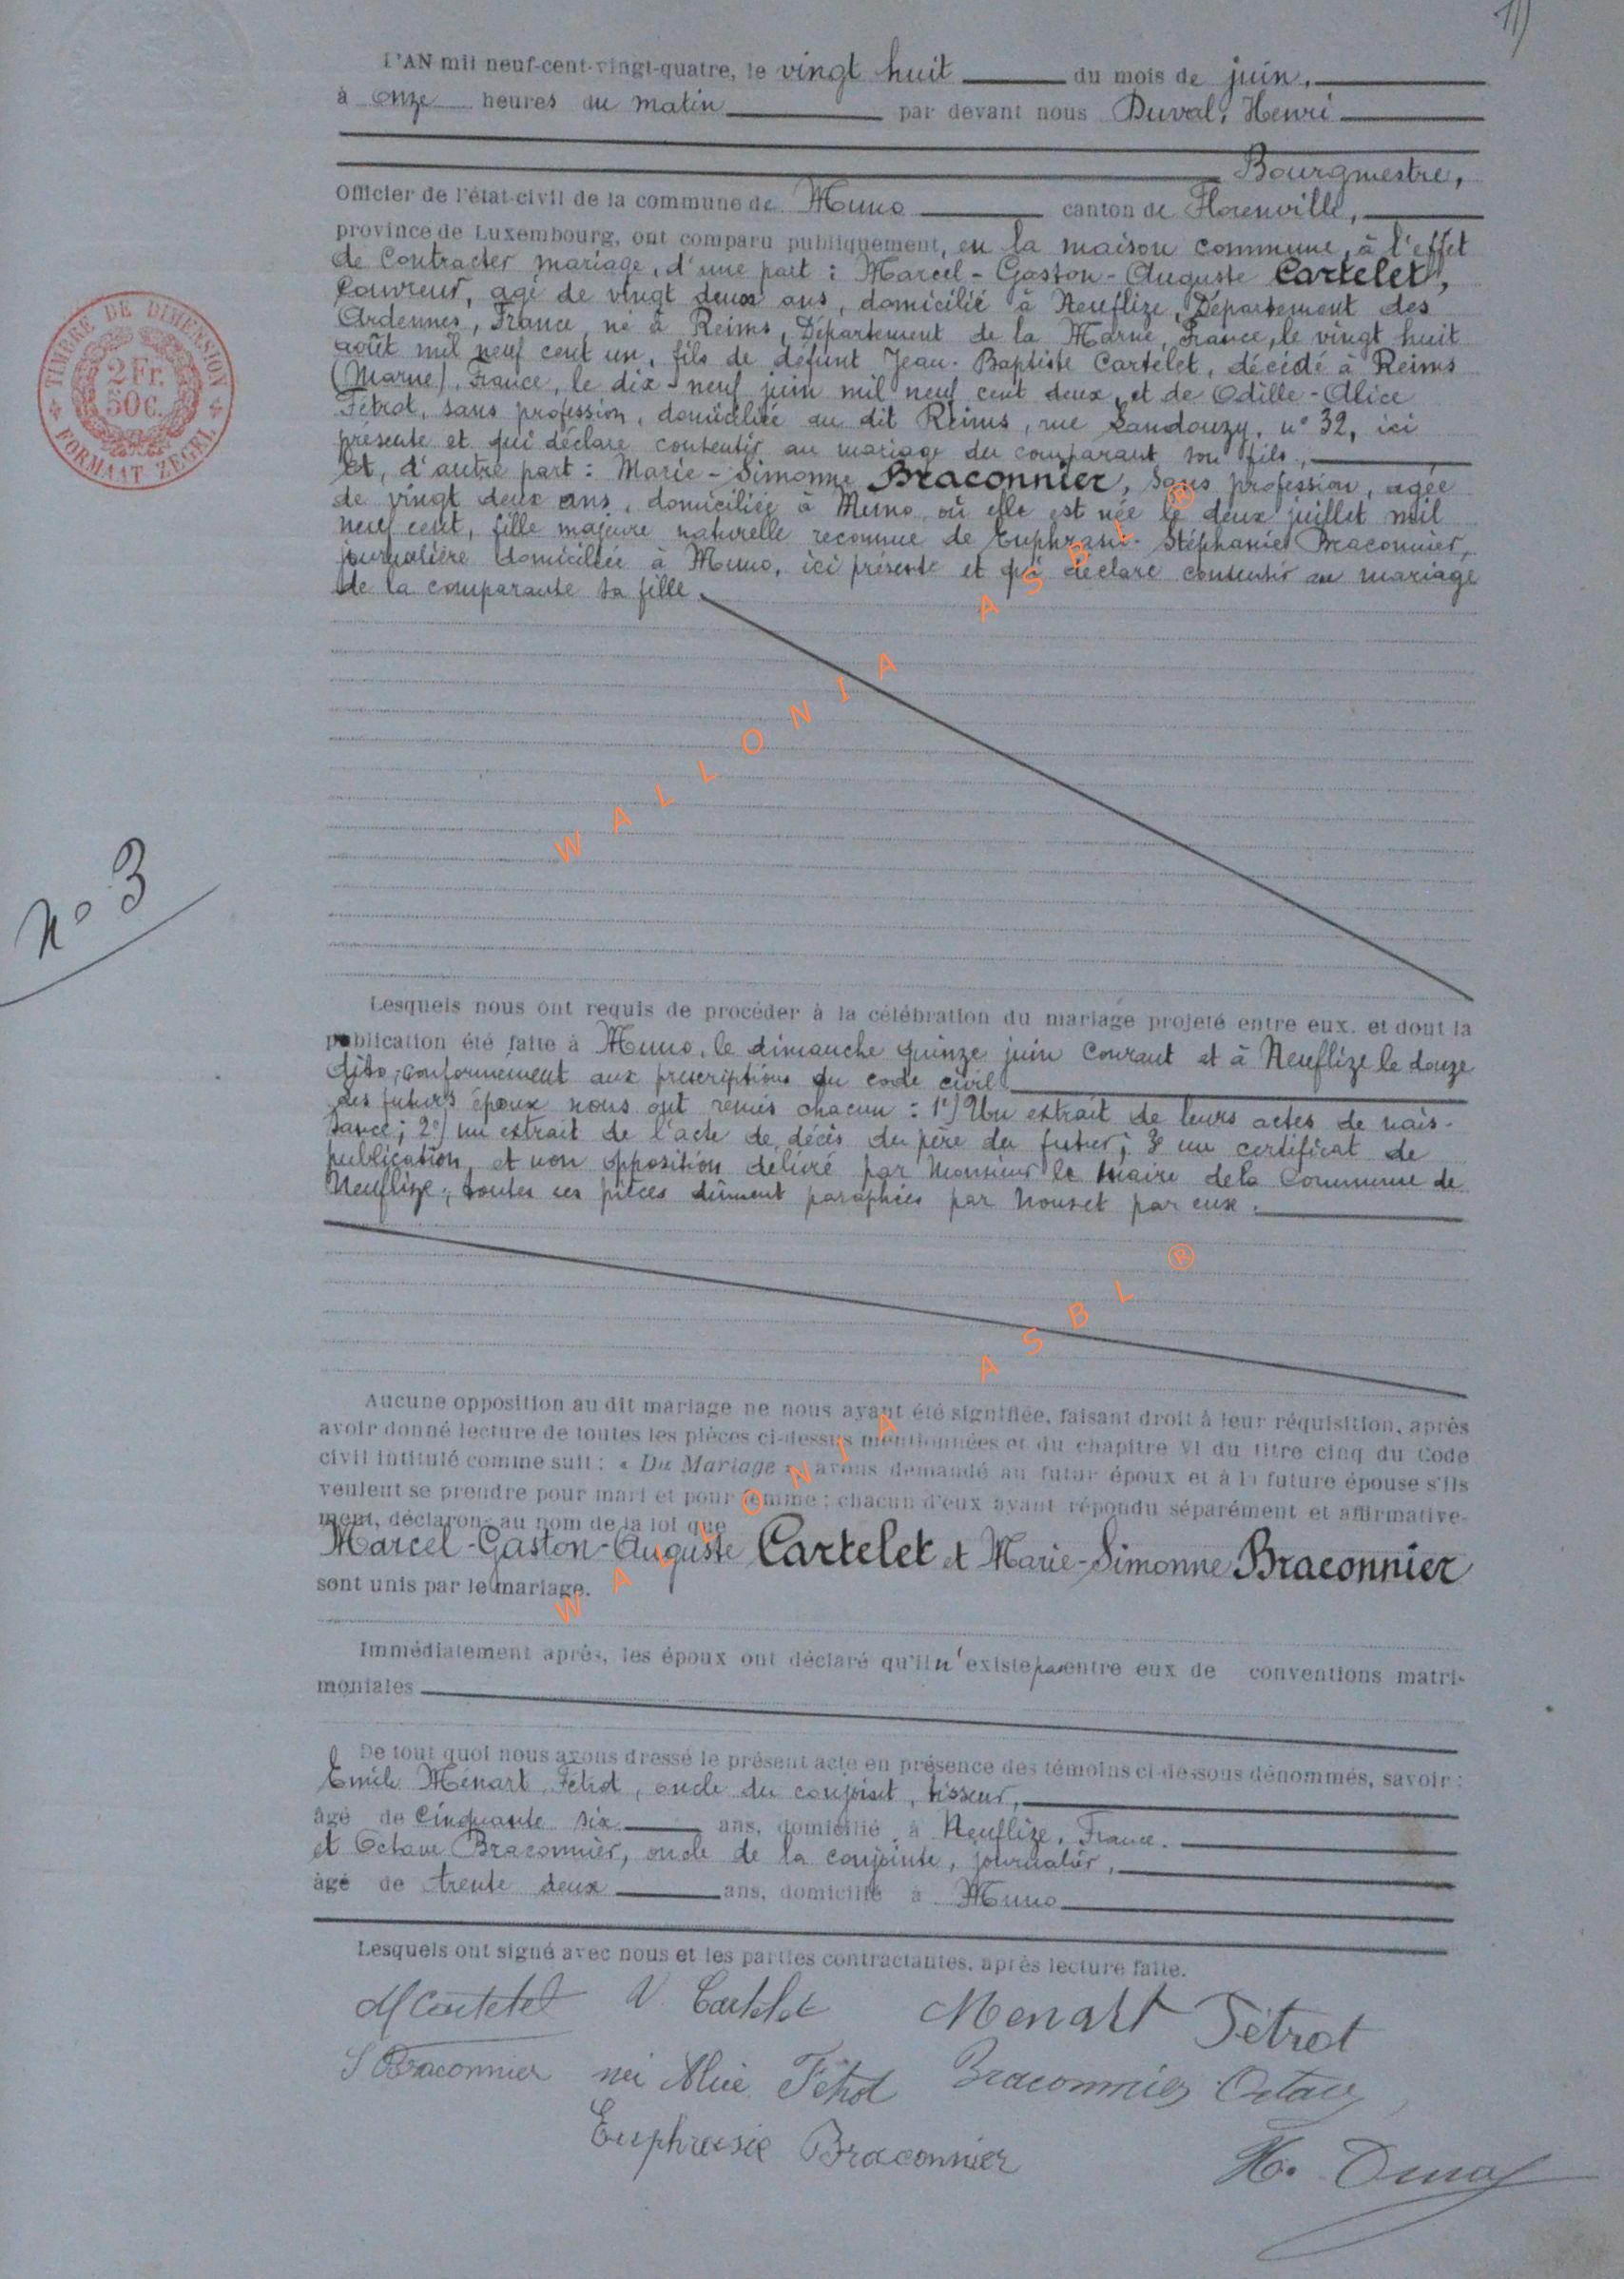 L'AN mil neuf-cent-vingt-quatre, le vingt huit du mois de juin,
à onze heures du matin par devant nous Duval, Henri
Bourgmestre,
Officier de l'état-civil de la commune de Muno canton de Florenville,
province de Luxembourg, ont comparu publiquement, en la maison commune, à l'effet
de Contracter mariage, d'une part : Marcel-Gaston-Auguste Cartelet,
Couvreur, agé de vingt deux ans, domicilié à Neuflize, Département des
Ardennes, France, né à Reims, Département de la Marne, France, le vingt huit
août mil neuf cent un, fils de défunt Jean-Baptiste Cartelet, décédé à Reims
(Marne), France, le dix-neuf juin mil neuf cent deux, et de Odille-Alice
Fétrot, sans profession, domiciliée au dit Reims, rue Landouzy, n° 32, ici
présente et qui déclare consentir au mariage du comparant son fils,
Et, d'autre part : Marie-Simonne Braconnier, sans profession, agée
de vingt deux ans, domiciliée à Muno, où elle est née le deux juillet mil
neuf cent, fille majeure naturelle reconnue de Stéphanie Braconnier,
journalière domiciliée à Muno, ici présente et qui déclare consentir au mariage
de la comparante sa fille.
TIMBRE DE DIMENSION
2 Fr.
50 c.
FORMAAT ZEGEL
N° 3
Lesquels nous ont requis de procéder à la célébration du mariage projeté entre eux, et dont la
publication été faite à Muno, le dimanche quinze juin courant et à Neuflize le douze
dito, conformément aux prescriptions du code civil
Les futurs époux nous ont remis chacun : 1°) Un extrait de leurs actes de nais-
sance ; 2°) un extrait de l'acte de décès du père du futur ; 3° un certificat de
publication et non opposition délivré par Monsieur le Maire de la Commune de
Neuflize ; toutes ces pièces dûment paraphées par nous et par eux.
Aucune opposition au dit mariage ne nous ayant été signifiée, faisant droit à leur réquisition, après
avoir donné lecture de toutes les pièces ci-dessus mentionnées et du chapitre VI du titre cinq du Code
civil intitulé comme suit : « Du Mariage », avons demandé au futur époux et à la future épouse s'ils
veulent se prendre pour mari et pour femme ; chacun d'eux ayant répondu séparément et affirmative-
ment, déclarons au nom de la loi que
Marcel-Gaston-Auguste Cartelet et Marie-Simonne Braconnier
sont unis par le mariage.
Immédiatement après, les époux ont déclaré qu'il n'existe pas entre eux de conventions matri-
moniales
De tout quoi nous avons dressé le présent acte en présence des témoins ci-dessous dénommés, savoir :
Emile Ménart Fétrot, oncle du conjoint, tisseur,
âgé de Cinquante six ans, domicilié à Neuflize, France.
et Octave Braconnier, oncle de la conjointe, journalier,
âgé de trente deux ans, domicilié à Muno
Lesquels ont signé avec nous et les parties contractantes, après lecture faite.
M Cartelet V. Cartelet Menart Fétrot
S Braconnier née Alice Fétrot Braconnier Octave
Euphrasie Braconnier
H. Duval
WALLONIA ASBL ®
WALLONIA ASBL ®